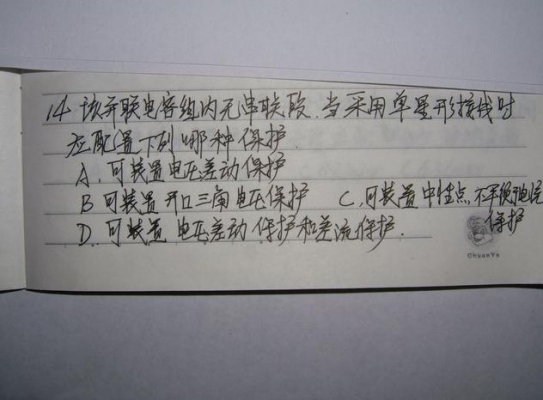 14 该并联电容组内无串联段.当采用单星形接线时
应配置下列哪种保护.
A.可装置电压差动保护
B可装置开口三角电压保护 C.可装置中性点不平衡电流
保护
D.可装置电压差动保护和差流保护.
ChuanYe